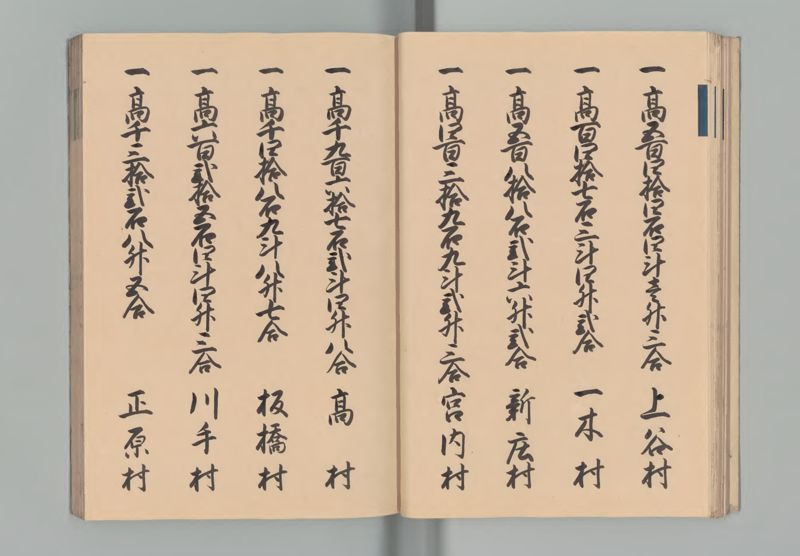 一 高五百四拾四石四斗壱升三合 上谷村
一 高百四拾七石二斗四升弐合 一木村
一 高五百八拾八石弐斗六升弐合 新庄村
一 高四百三拾九石九斗弐升三合 宮内村
一 高千九百六拾七石弐斗四升八合 高村
一 高千四拾八石九斗八升七合 板橋村
一 高九百弐拾五石四斗四升三合 川手村
一 高千三拾弐石八升五合 正原村